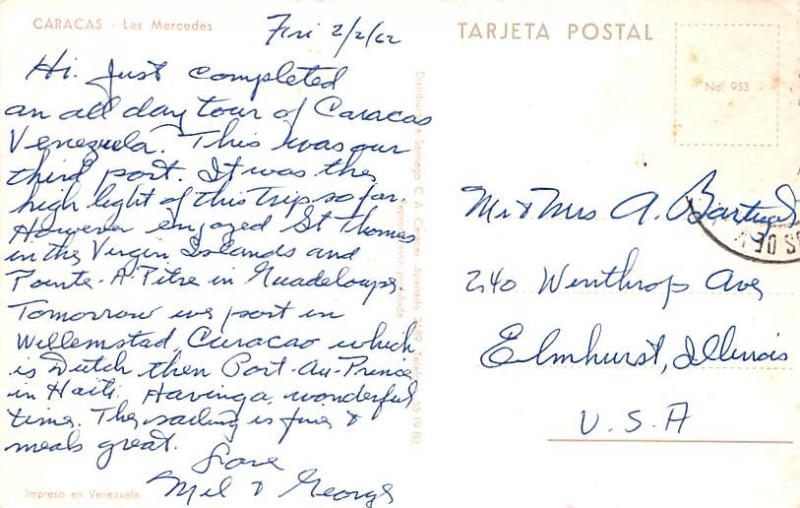 CARACAS - Las Mercedes
Fri 2/2/62
Hi. Just completed
an all day tour of Caracas
Venezuela. This was our
third port. It was the
high light of this trip so far.
However enjoyed St Thomas
in the Virgin Islands and
Pointe-A-Pitre in Guadeloupe.
Tomorrow we port in
Willemstad, Curacao which
is Dutch then Port-Au-Prince
in Haiti. Having a wonderful
time. The sailing is fine &
meals great.
Love
Mel & George
Impreso en Venezuela
Santiago C. A. Caracas Apartado
Reproducción prohibida
TARJETA POSTAL
No. 953
Mr & Mrs A.
240 Winthrop Ave
Elmhurst, Illinois
U.S.A